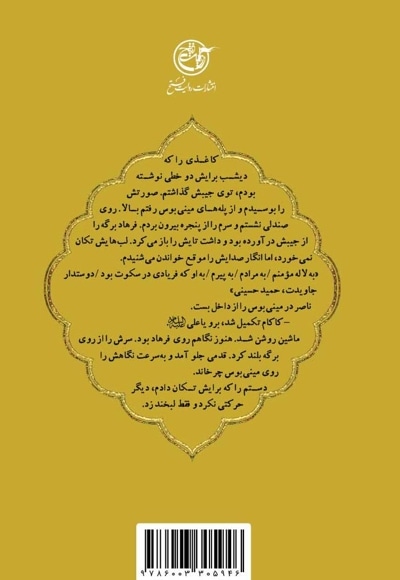 انتشارات روایت فتح
کاغذی را که
دیشب برایش دو خطی نوشته
بودم، توی جیبش گذاشتم. صورتش
را بوسیدم و از پله‌های مینی‌بوس رفتم بالا. روی
صندلی نشستم و سرم را از پنجره بیرون بردم. فرهاد برگه را
از جیبش در آورده بود و داشت تایش را باز می‌کرد. لب‌هایش تکان
نمی‌خورد، اما انگار صدایش را موقع خواندن می‌شنیدم.
«به لاله مؤمنم / به مرادم / به پیرم / به او که فریادی در سکوت بود / دوستدار
جاویدت، حمید حسینی»
ناصر در مینی‌بوس را از داخل بست.
– کاکام تکمیل شد، برو یاعلی
ماشین روشن شد. هنوز نگاهم روی فرهاد بود. سرش را از روی
برگه بلند کرد. قدمی جلو آمد و به‌سرعت نگاهش را
روی مینی‌بوس چرخاند.
دستم را که برایش تکان دادم، دیگر
حرکتی نکرد و فقط لبخند زد.
9786003305946